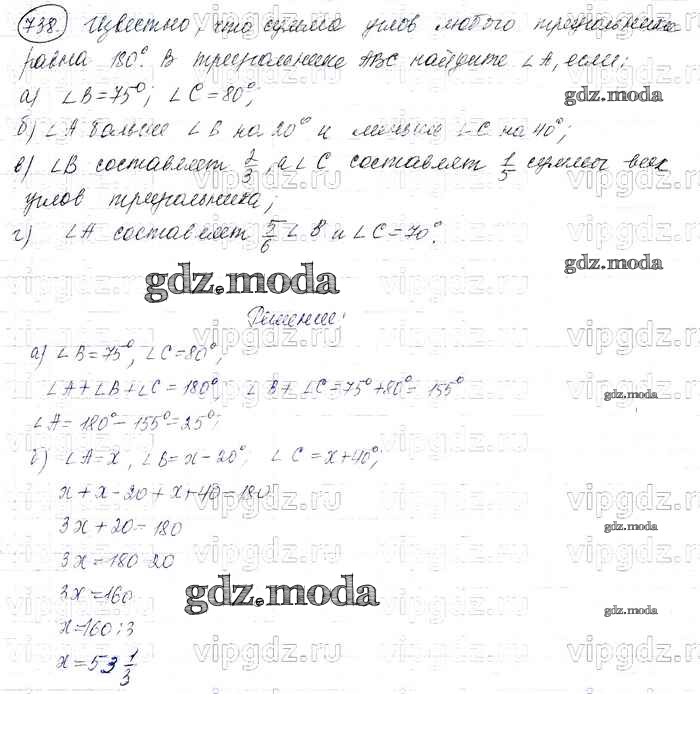 738. Известно, что сумма углов любого треугольника
равна 180°. В треугольнике ABC найдите ∠A, если:
а) ∠B=75°; ∠C=80°;
gdz.moda
б) ∠A больше ∠B на 20° и меньше ∠C на 40°;
в) ∠B составляет 2/3, а ∠C составляет 1/5 суммы всех
углов треугольника;
г) ∠A составляет 5/6 ∠B и ∠C=70°.
gdz.moda
gdz.moda
Решение:
а) ∠B=75°, ∠C=80°;
∠A+∠B+∠C=180°; ∠B+∠C=75°+80°=155°
gdz.moda
∠A=180°-155°=25°;
б) ∠A=x, ∠B=x-20°; ∠C=x+40°;
x+x-20+x+40=180
3x+20=180
gdz.moda
3x=180-20
3x=160
gdz.moda
gdz.moda
x=160:3
x=53 1/3
gdz.moda
vipgdz.ru